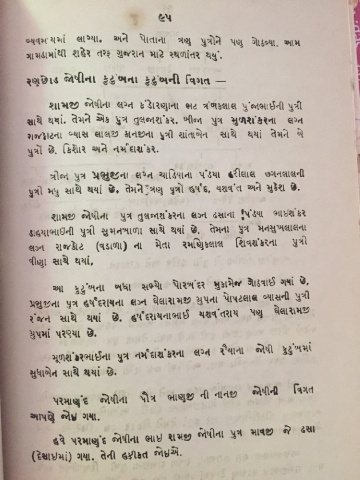 ૯૫
વ્યવસાયમાં લાગ્યા. અને પોતાના ત્રણ પુત્રોને પણ ગોઠવ્યા. આમ
ગામડામાંથી શહેર તરફ ગુજરાન માટે સ્થળાંતર થયું.
રણછોડ જોષીના કુટુંબના કુટુંબની વિગત —
શામજી જોષીના લગ્ન કંડોરણાના ભટ ત્રંબકલાલ પુંજાભાઈની પુત્રી
સાથે થયાં. તેમને એક પુત્ર તુલજાશંકર. બીજા પુત્ર મુળશંકરના લગ્ન
રાજકોટના વ્યાસ લાલજી મનજીના પુત્રી શાંતાબેન સાથે થયાં તેમને બે
પુત્રો છે. કિશોર અને નર્મદાશંકર.
ત્રીજા પુત્ર પ્રભુજીના લગ્ન ચાડિયાના પંડયા હરીલાલ છગનલાલની
પુત્રી મધુ સાથે થયાં છે. તેમને ત્રણ પુત્રો હર્ષદ, યશવંત અને મુકેશ છે.
શામજી જોષીના પુત્ર તુલજાશંકરના લગ્ન ઢસાના પંડયા ભાઇશંકર
ડાહયાભાઈની પુત્રી સુમનબાળા સાથે થયાં છે. તેમના પુત્ર મનસુખલાલના
લગ્ન રાજકોટ (વડાળા) ના મેતા રમણિકલાલ શિવશંકરના પુત્રી
વીણા સાથે થયાં.
આ કુટુંબના બધા સભ્યો પોરબંદર મુકામેજ ગોઠવાઈ ગયાં છે.
પ્રભુજીના પુત્ર હર્ષદરાયના લગ્ન ઘેલારામજી ગ્રુપના પોપટલાલ વ્યાસની પુત્રી
રંજન સાથે થયાં છે. હર્ષદરાયનાભાઈ યશવંતરાય પણ ઘેલારામજી
ગ્રુપમાં પરણ્યા છે.
મૂળશંકરભાઈના પુત્ર નર્મદાશંકરના લગ્ન રંઘાના જોષી કુટુંબમાં
સુધાબેન સાથે થયાં છે.
પરમાણંદ જોષીના પૌત્ર ભાણજી ની નાનજી જોષીની વિગત
આપણે જોઇ ગયા.
હવે પરમાણંદ જોષીના ભાઇ શામજી જોષીના પુત્ર માવજી જે ઢસા
(દેસાઇમાં) ગયા. તેની હકીકત જોઇએ.